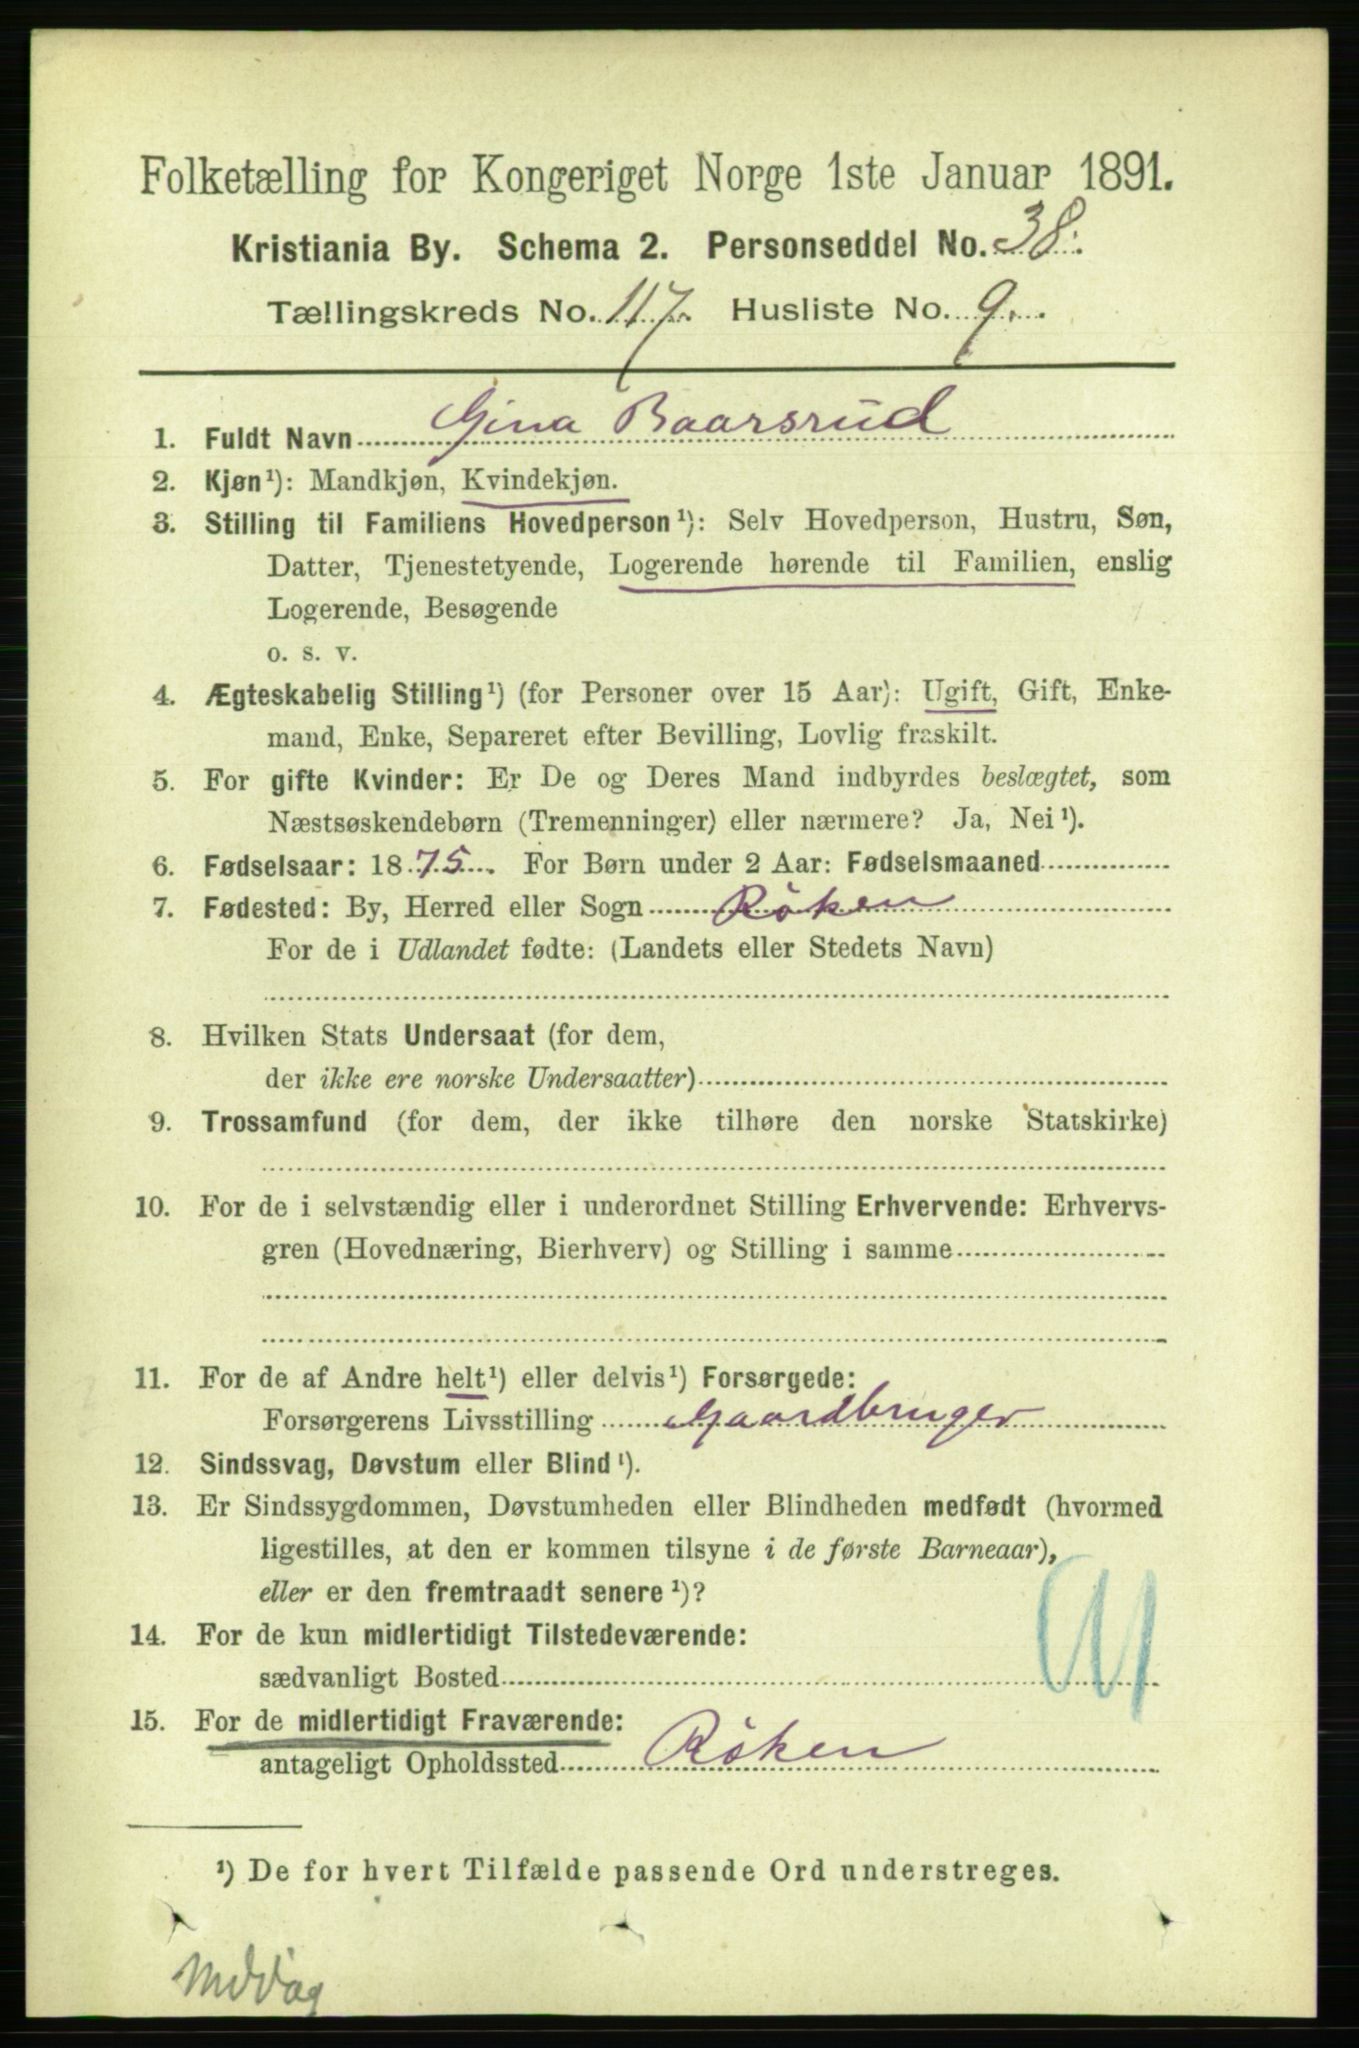 Folketælling for Kongeriget Norge 1ste Januar 1891.
Kristiania By. Schema 2. Personseddel No. 38.
Tællingskreds No. 117. Husliste No. 9.
1. Fuldt Navn Gina Baarsrud
2. Kjøn¹): Mandkjøn, Kvindekjøn.
3. Stilling til Familiens Hovedperson¹): Selv Hovedperson, Hustru, Søn,
Datter, Tjenestetyende, Logerende hørende til Familien, enslig
Logerende, Besøgende
o. s. v.
4. Ægteskabelig Stilling¹) (for Personer over 15 Aar): Ugift, Gift, Enke-
mand, Enke, Separeret efter Bevilling, Lovlig fraskilt.
5. For gifte Kvinder: Er De og Deres Mand indbyrdes beslægtet, som
Næstsøskendebørn (Tremenninger) eller nærmere? Ja, Nei¹).
6. Fødselsaar: 1875. For Børn under 2 Aar: Fødselsmaaned
7. Fødested: By, Herred eller Sogn Röken
For de i Udlandet fødte: (Landets eller Stedets Navn)
8. Hvilken Stats Undersaat (for dem,
der ikke ere norske Undersaatter)
9. Trossamfund (for dem, der ikke tilhøre den norske Statskirke)
10. For de i selvstændig eller i underordnet Stilling Erhvervende: Erhvervs-
gren (Hovednæring, Bierhverv) og Stilling i samme
11. For de af Andre helt¹) eller delvis¹) Forsørgede:
Forsørgerens Livsstilling Gaardbruger
12. Sindssvag, Døvstum eller Blind¹).
13. Er Sindssygdommen, Døvstumheden eller Blindheden medfødt (hvormed
ligestilles, at den er kommen tilsyne i de første Barneaar),
eller er den fremtraadt senere¹)?
14. For de kun midlertidigt Tilstedeværende:
sædvanligt Bosted
15. For de midlertidigt Fraværende:
antageligt Opholdssted Röken
¹) De for hvert Tilfælde passende Ord understreges.